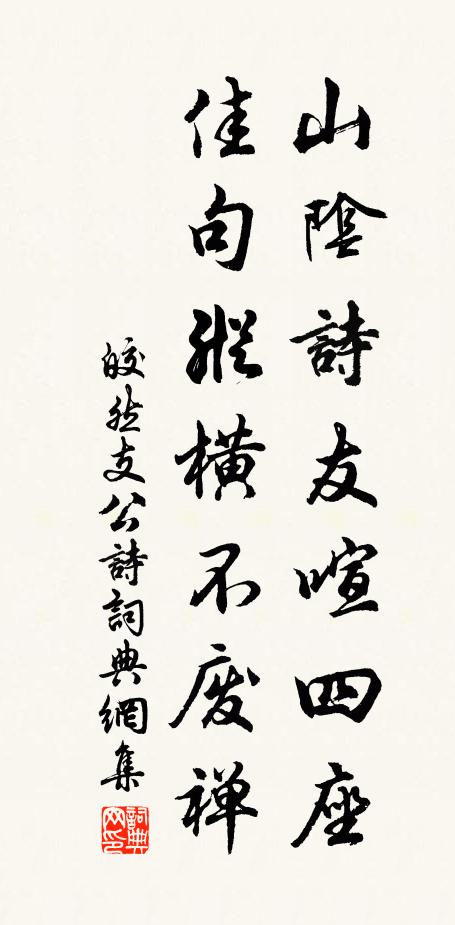 山陰詩友喧四座
佳句縱橫不廢禅
皎然支公詩詞典網集
詞典网印